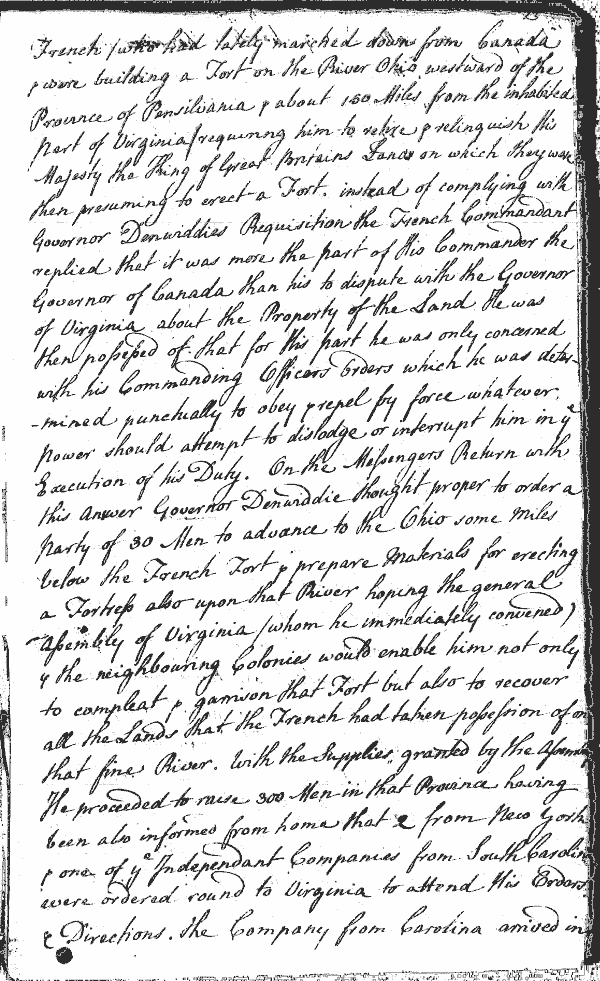 French (who had lately marched down from Canada
& were building a Fort on the River Ohio westward of the
Province of Pensilvania & about 150 Miles from the inhabited
part of Virginia) requiring him to retire & relinquish His
Majesty the King of Great Britains Lands on which they were
then presuming to erect a Fort. instead of complying with
Governor Denwiddies Requisition the French Commandant
replied that it was more the part of His Commander the
Governor of Canada than his to dispute with the Governor
of Virginia about the Property of the Land He was
then possessed of. that for His part he was only concerned
with his Commanding Officers Orders which he was deter-
-mined punctually to obey & repel by force whatever
power should attempt to dislodge or interrupt him in ye
Execution of his Duty. On the Messengers Return with
this Answer Governor Denwiddie thought proper to order a
Party of 30 Men to advance to the Ohio some Miles
below the French Fort & prepare Materials for erecting
a Fortress also upon that River hoping the general
Assembly of Virginia (whom he immediately convened)
& the neighbouring Colonies would enable him not only
to compleat & garrison that Fort but also to recover
all the Lands that the French had taken possession of on
that fine River. With the Supplies granted by the Assembly
He proceeded to raise 300 Men in that Province having
been also informed from home that 2 from New York
& one of ye Independant Companies from South Carolin
were ordered round to Virginia to attend His Orders
& Directions. the Company from Carolina arrived in